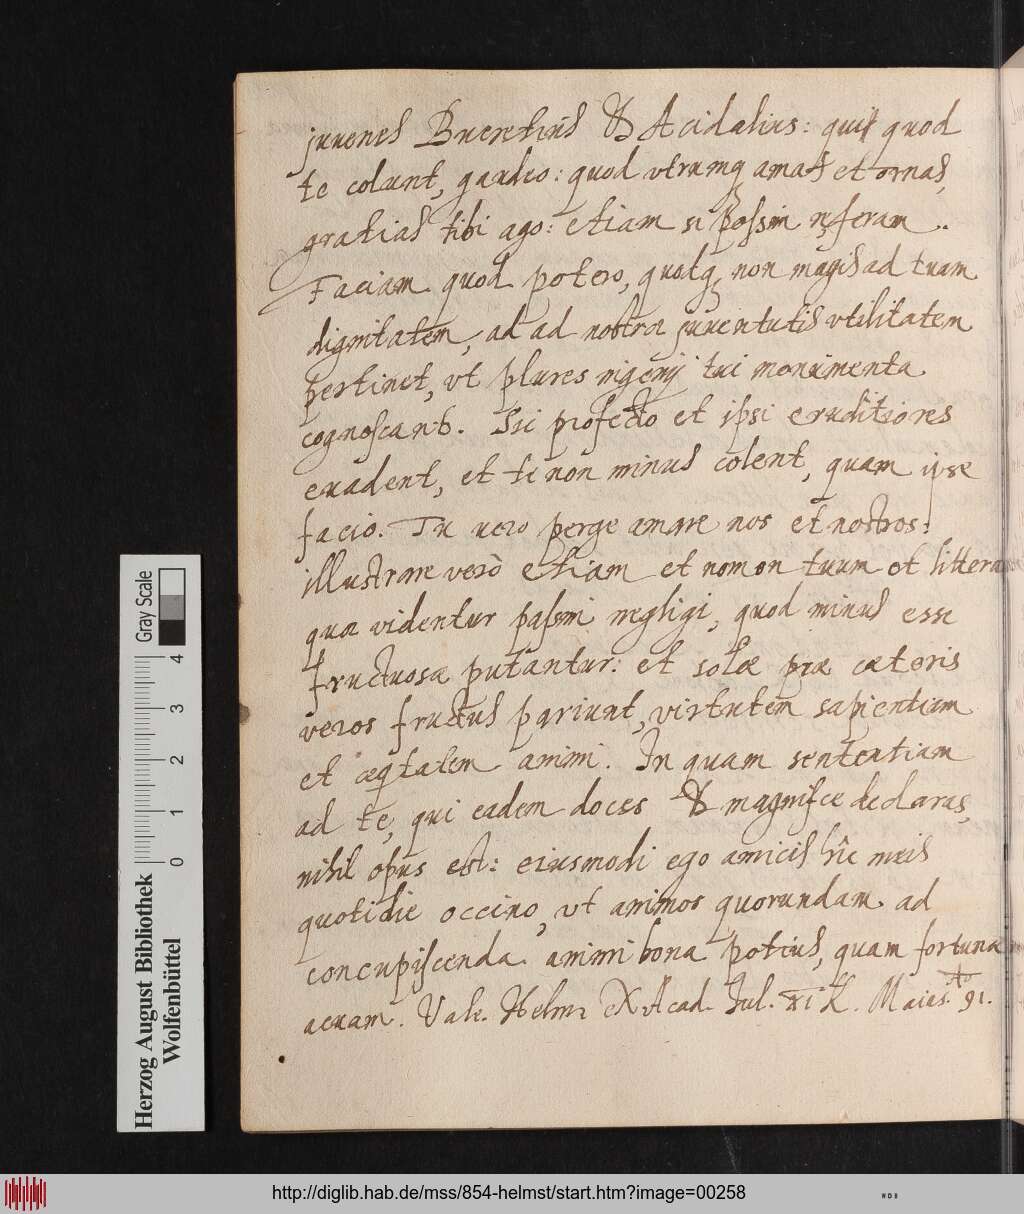 juuenes Bueretius & Acidalius: qui quod
te colunt, gaudeo: quod vtrumq amas et ornas,
gratias tibi ago: etiam si possim referam..
Faciam quod potero, quodq non magis ad tuam
dignitatem, ad ad nostræ juuentutis vtilitatem
pertinet, vt plures ingenij tui monumenta
cognoscant. Sic profecto et ipsi eruditiores
euadent, et te non minus colent, quam ipse
facio. Tu uero perge amare nos et nostros:
illustrare verò etiam et nomen tuum et littera
quæ videntur passim negligi, quod minus esse
fructuosæ putantur: et solæ præ cæteris
veros fructus pariunt, virtutem sapientiam
et æqtatem animi. In quam sententiam
ad te, qui eadem doces & magnifice declaras,
nihil opus est: eiusmodi ego amicis hîc meis
quotidie occino, vt animos quorundam ad
concupiscenda animi bona potius, quam fortunæ
acuam. Vale. Helm. Ex Acad. Jul. XI K. Maias. Aº 91.
Herzog August Bibliothek
Wolfenbüttel
0 1 2 3 4
Gray Scale
http://diglib.hab.de/mss/854-helmst/start.htm?image=00258